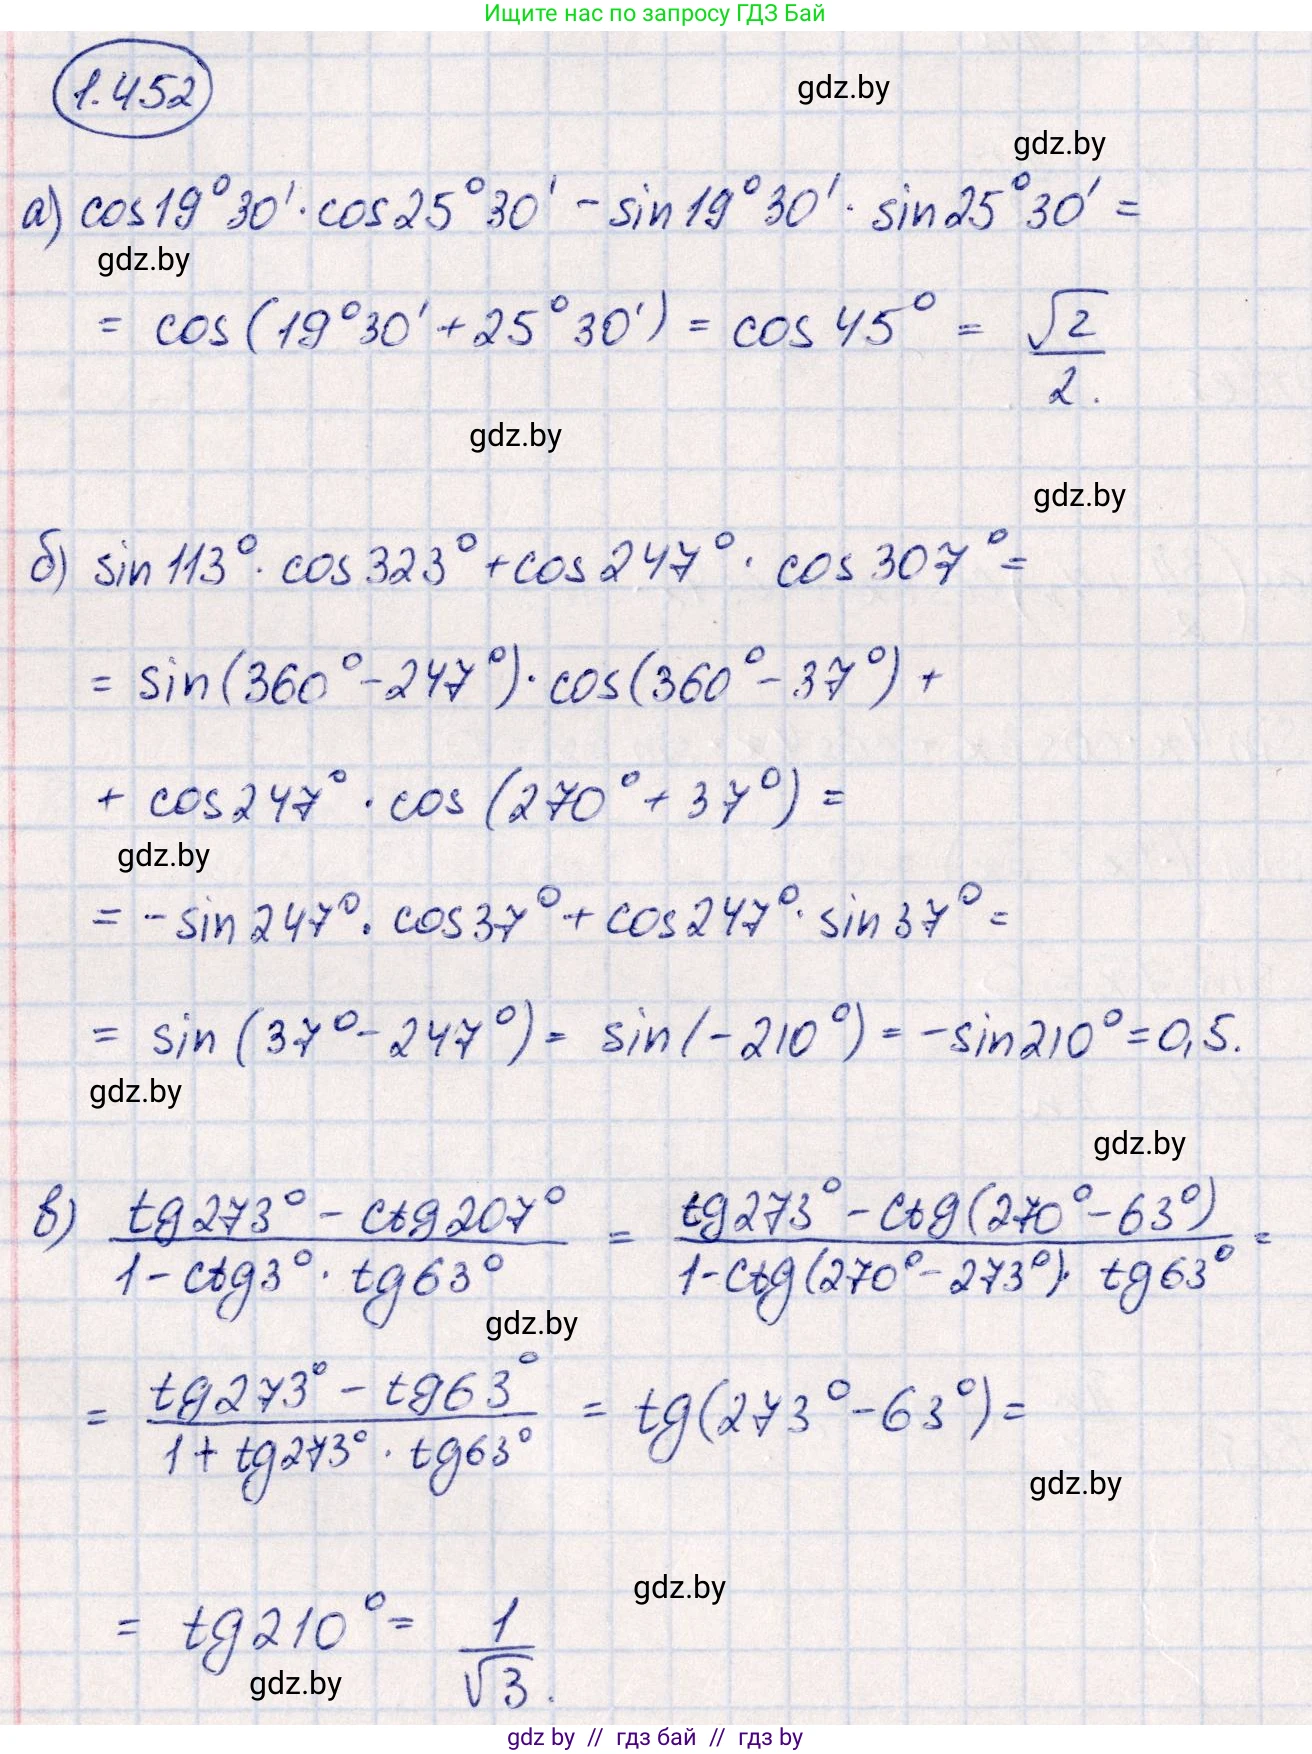 Ищите нас по запросу ГДЗ Бай
1.452
gdz.by
gdz.by
а) cos19°30'·cos25°30' - sin19°30'·sin25°30' =
gdz.by
= cos(19°30' + 25°30') = cos 45° = √2/2.
gdz.by
gdz.by
б) sin113°·cos323° + cos247°·cos307° =
= sin(360° - 247°)·cos(360° - 37°) +
+ cos247°·cos(270° + 37°) =
gdz.by
= -sin247°·cos37° + cos247°·sin37° =
= sin(37° - 247°) = sin(-210°) = -sin210° = 0,5.
gdz.by
gdz.by
в) (tg273° - ctg207°)/(1 - ctg3°·tg63°) = (tg273° - ctg(270° - 63°))/(1 - ctg(270° - 273°)·tg63°) =
gdz.by
= (tg273° - tg63°)/(1 + tg273°·tg63°) = tg(273° - 63°) =
gdz.by
gdz.by
= tg210° = 1/√3.
gdz.by
gdz by // гдз бай // гдз by